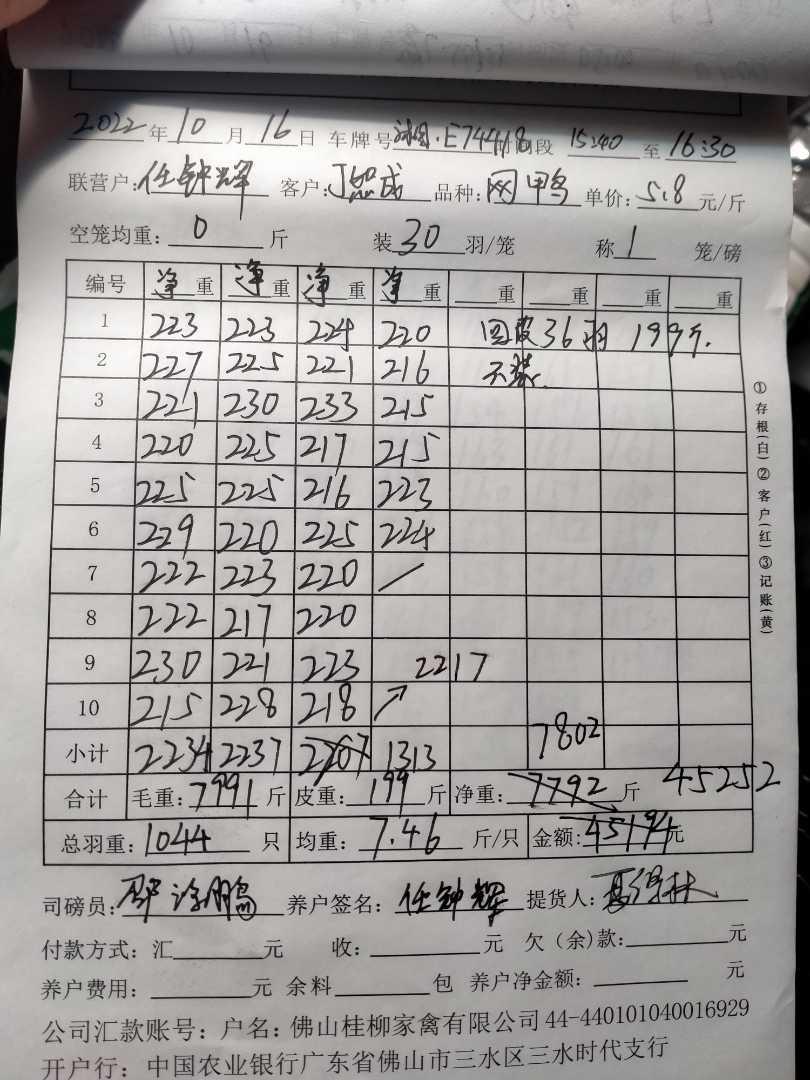 2022年10月16日 车牌号 湘·E74418时间段 15:40至16:30
联营户:任钟辉 客户: 品种:网鸭 单价:5.8元/斤
空笼均重:0斤 装30羽/笼 称1笼/磅
编号 净重 净重 净重 净重 重 重 重 重
1 223 223 224 220 回皮36羽 199斤.
2 227 225 221 216 不装
3 221 230 233 215
4 220 225 217 215
5 225 225 216 223
6 229 220 225 224
7 222 223 220
8 222 217 220
9 230 221 223 2217
10 215 228 218
小计 2234 2237 2207 1313 7802
合计 毛重:7991斤 皮重:199斤 净重:7792斤 45252
总羽重:1044只 均重:7.46斤/只 金额:45194元
司磅员: 养户签名:任钟辉 提货人:
付款方式:汇 元 收: 元 欠(余)款: 元
养户费用: 元 余料 包 养户净金额: 元
公司汇款账号:户名:佛山桂柳家禽有限公司44-440101040016929
开户行:中国农业银行广东省佛山市三水区三水时代支行
①存根(白)②客户(红)③记账(黄)